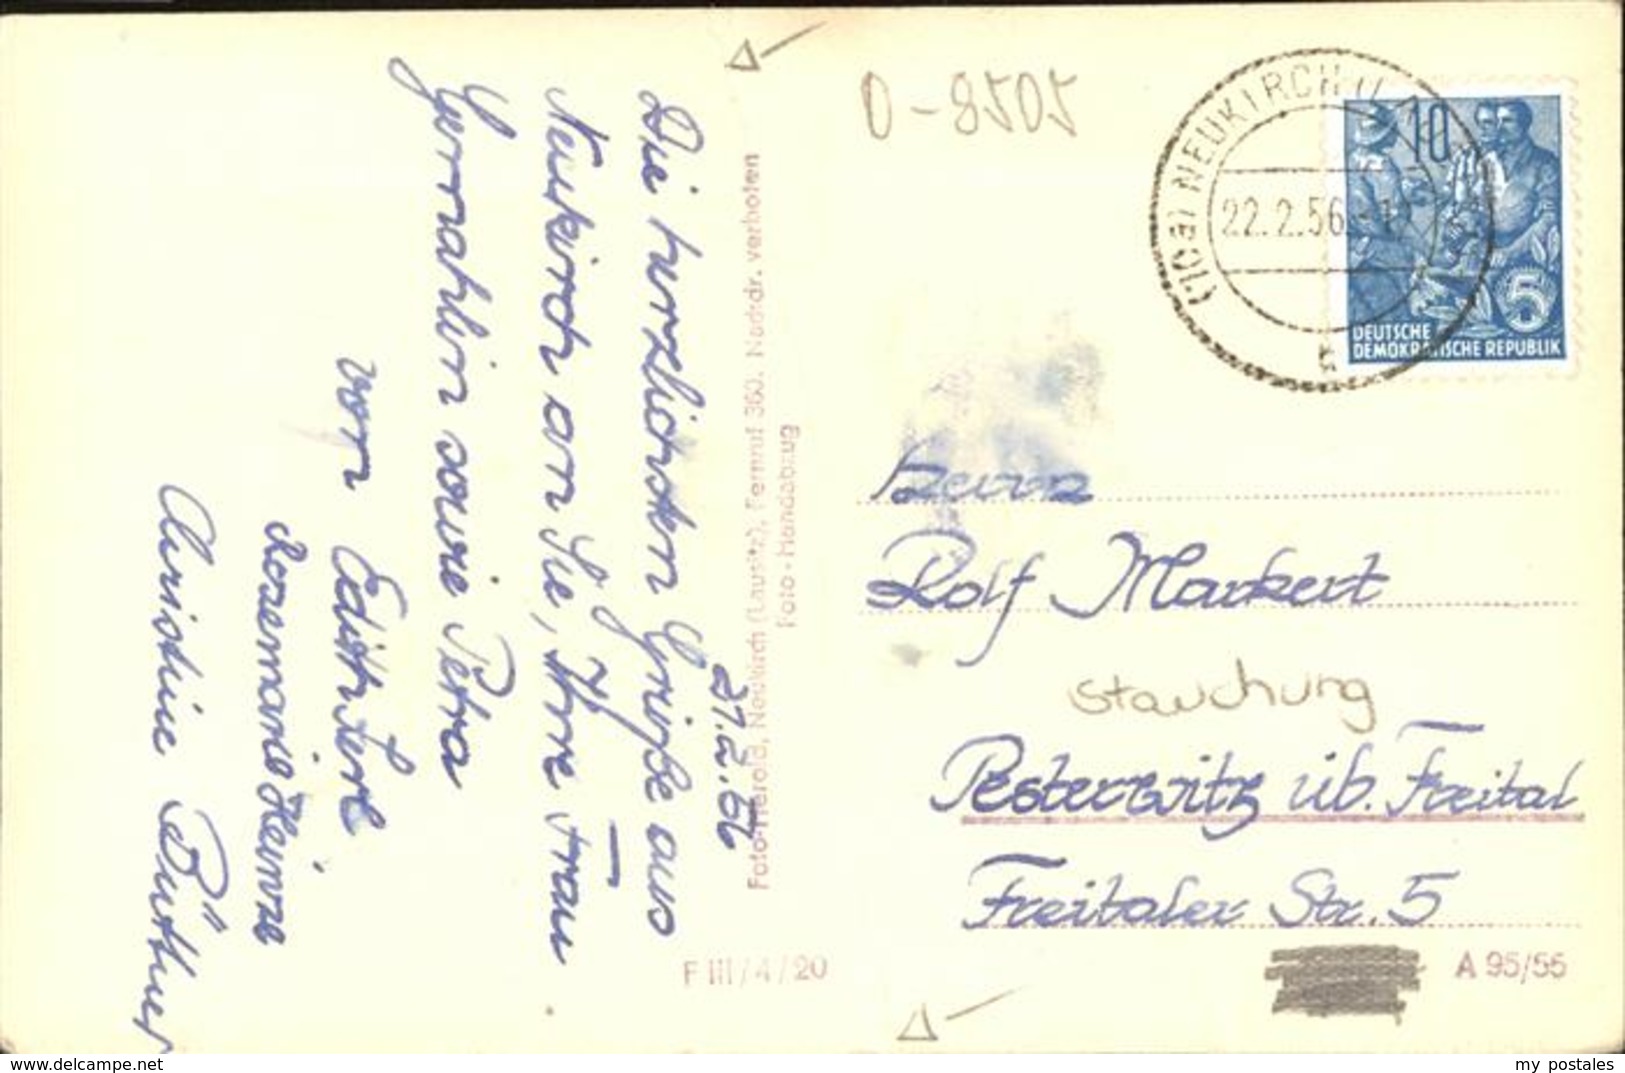 21.2.56
Die herzlichsten Grüße aus
Neukirch an Sie, Ihre Frau
Gemahlin sowie Petra
von Edith
Rosemarie Heinze
Christine Büttner
Foto-Herold, Neukirch (Lausitz), Fernruf 360. Nachdr. verboten
Foto-Handabzug
F III/4/20
O-8505
(10a) NEUKIRCH
22.2.56
10
5
DEUTSCHE
DEMOKRATISCHE REPUBLIK
Herrn
Rolf Markert
Stauchung
Pesterwitz üb. Freital
Freitaler Str. 5
A 95/55
my postales